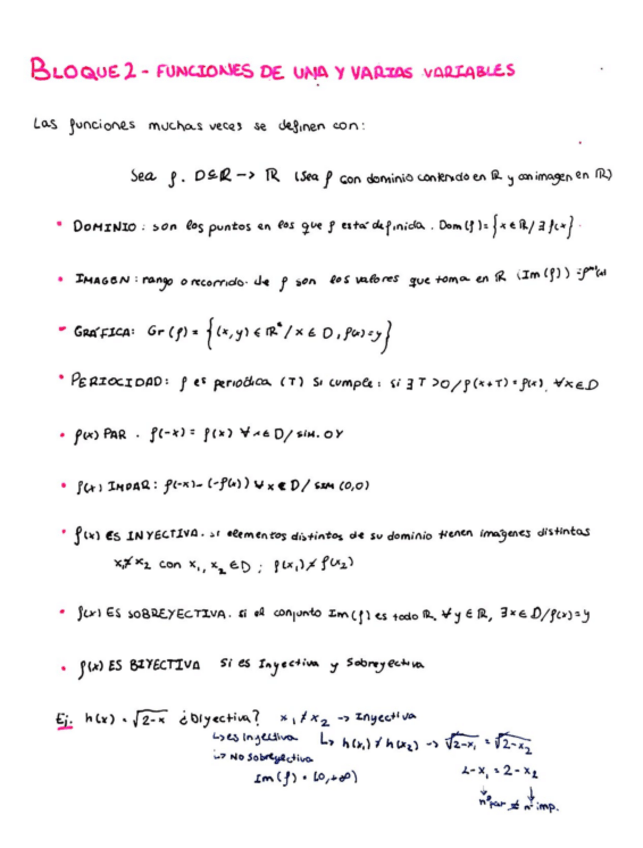 BLOQUE 2 - FUNCIONES DE UNA Y VARIAS VARIABLES
Las funciones muchas veces se definen con:
Sea f. D⊆R -> R (Sea f con dominio contenido en R y con imagen en R)
• DOMINIO: son los puntos en los que f está definida. Dom(f)= {x∈R/∃ f(x)}.
• IMAGEN: rango o recorrido. de f son los valores que toma en R (Im(f))
• GRÁFICA: Gr(f) = {(x,y) ∈ R² / x ∈ D, f(x)=y}
• PERIOCIDAD: f es periodica (T) si cumple: si ∃ T >0 / f(x+T) = f(x), ∀x∈D
• f(x) PAR. f(-x) = f(x) ∀x∈D / SIM. OY
• f(x) IMPAR: f(-x) = (-f(x)) ∀x∈D / SIM (0,0)
• f(x) ES INYECTIVA. si elementos distintos de su dominio tienen imágenes distintas
x₁≠x₂ con x₁, x₂ ∈D; f(x₁)≠f(x₂)
• f(x) ES SOBREYECTIVA. si el conjunto Im(f) es todo R. ∀y∈R, ∃x∈D/f(x)=y
• f(x) ES BIYECTIVA Si es Inyectiva y Sobreyectiva
Ej. h(x) = √2-x ¿Biyectiva? x₁≠x₂ -> Inyectiva
↳es inyectiva ↳ h(x₁)≠h(x₂) -> √2-x₁ = √2-x₂
↳ No sobreyectiva 2-x₁ = 2-x₂
Im(f) = (0,+∞) ↓ ↓
nº par ≠ nº imp.